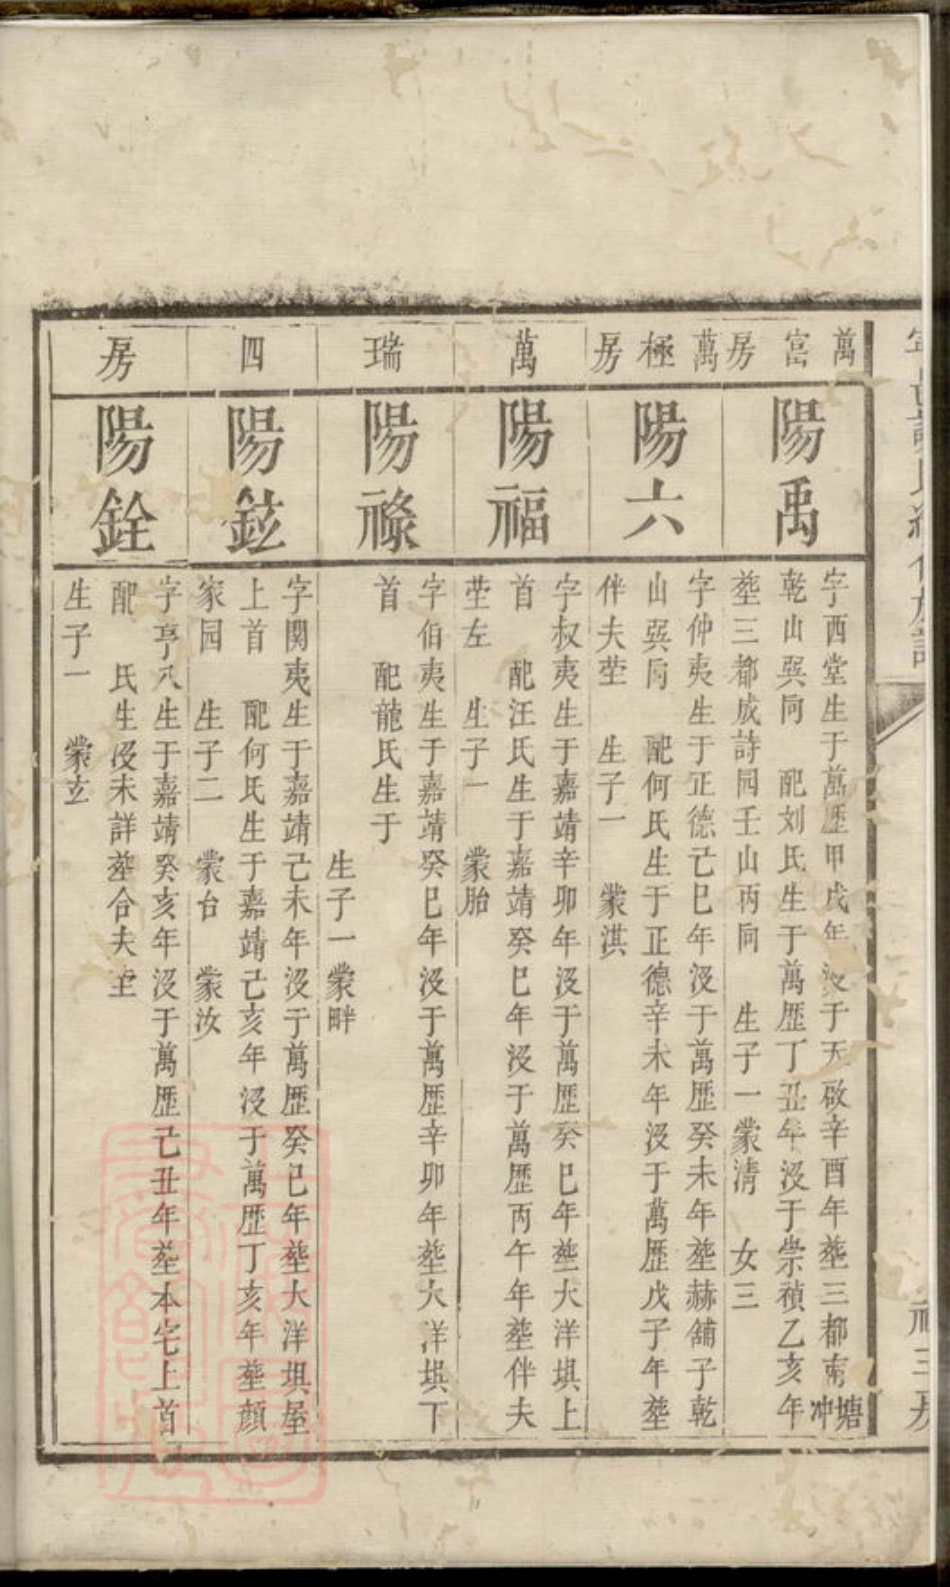 萬富房
陽禹
字西堂生于萬歷甲戌年沒于天啟辛酉年塟三都南塘冲
乾山巽向 配刘氏生于萬歷丁丑年沒于崇禎乙亥年
塟三都成詩园壬山丙向 生子一蒙清 女三
萬極房
陽六
字仲夷生于正德己巳年沒于萬歷癸未年塟赫舖子乾
山巽向 配何氏生于正德辛未年沒于萬歷戊子年塟
伴夫茔 生子一 蒙淇
萬
陽福
字叔夷生于嘉靖辛卯年沒于萬歷癸巳年塟大洋垻上
首 配汪氏生于嘉靖癸巳年沒于萬歷丙午年塟伴夫
茔左 生子一 蒙胎
瑞
陽祿
字伯夷生于嘉靖癸巳年沒于萬歷辛卯年塟大洋垻下
首 配龍氏生于
生子一蒙畔
四
陽鉉
字関夷生于嘉靖己未年沒于萬歷癸巳年塟大洋垻屋
上首 配何氏生于嘉靖己亥年沒于萬歷丁亥年塟顔
家园 生子二 蒙台 蒙汝
房
陽銓
字亨八生于嘉靖癸亥年沒于萬歷己丑年塟本宅上首
配 氏生沒未詳塟合夫茔
生子一 蒙玄